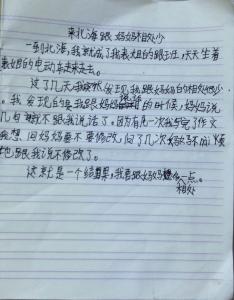 来北海跟妈妈相处少
一到北海，我就成了我表姐的跟班，天天坐着
表姐的电动车走来走去。
过了几天，我突然发现我跟妈妈的相处好少
。我发现的是我跟妈妈说话的时候，妈妈说
几句就不跟我说话了。因为有一次我写完了作文
我想，问妈妈要不要修改，问了几次妈妈不耐烦
地跟我说不修改了。
这就是一个结果，我要跟妈妈相处多一点。